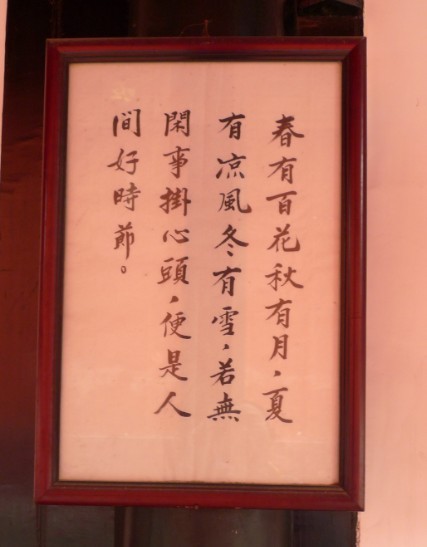 春有百花秋有月，夏
有凉風冬有雪，若無
閑事掛心頭，便是人
間好時節。